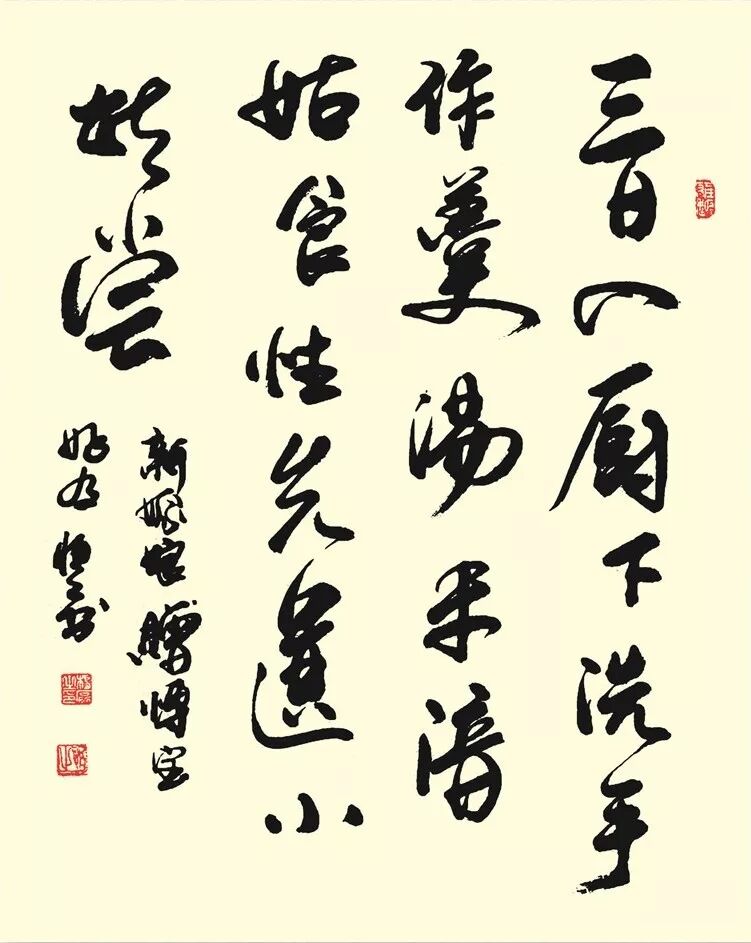 三日入厨下洗手
作羹湯未諳
姑食性先遣小
姑尝
新嫁娘